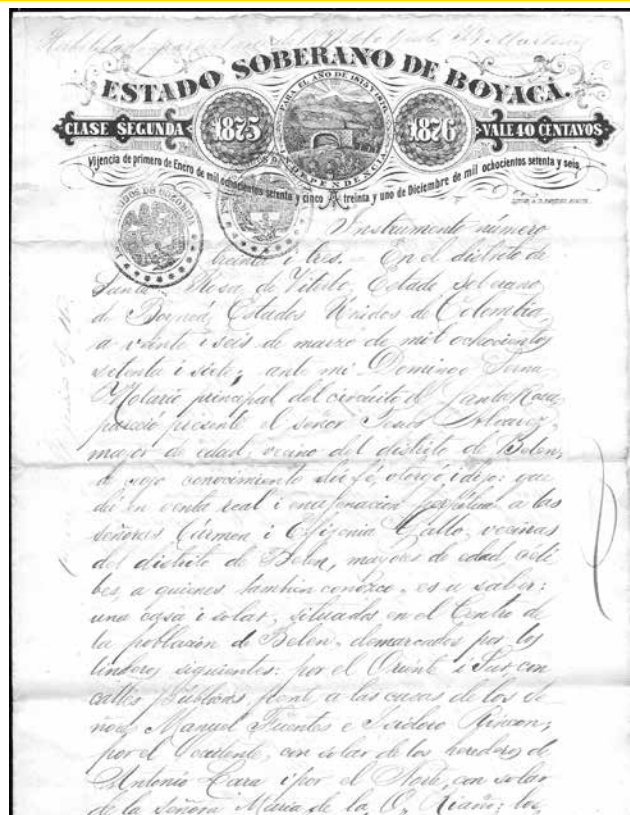 ESTADO SOBERANO DE BOYACÁ.
PARA EL AÑO DE 1875 Y 1876
CLASE SEGUNDA 1875 1876 VALE 40 CENTAVOS
INDEPENDENCIA
Vijencia de primero de Enero de mil ochocientos setenta y cinco á treinta y uno de Diciembre de mil ochocientos setenta y seis.
Instrumento número
treinta i tres. En el distrito de
Santa Rosa de Viterbo, Estado Soberano
de Boyacá, Estados Unidos de Colombia,
a veinte i seis de marzo de mil ochocientos
setenta i siete, ante mi Domingo
Notario principal del circúito de Santa Rosa,
pareció presente el señor Alvarez,
mayor de edad, vecino del distrito de Belen,
de cuyo conocimiento doi fé, otorgó, i dijo: que
dá en venta real i enajenacion perpétua a las
señoras Cármen i Efijenia Gallo, vecinas
del distrito de Belen, mayores de edad, celi
bes, a quienes tambien conozco, es a saber:
una casa i solar, situados en el Centro de
la poblacion de Belen, demarcados por los
linderos siguientes: por el Oriente i Sur con
calles públicas, frente a las casas de los se
ñores Manuel Fuentes e Isidoro Rincon;
por el Occidente, con solar de los herederos de
Antonio Lara i por el Norte, con solar
de la señora María de la O, Riaño; los